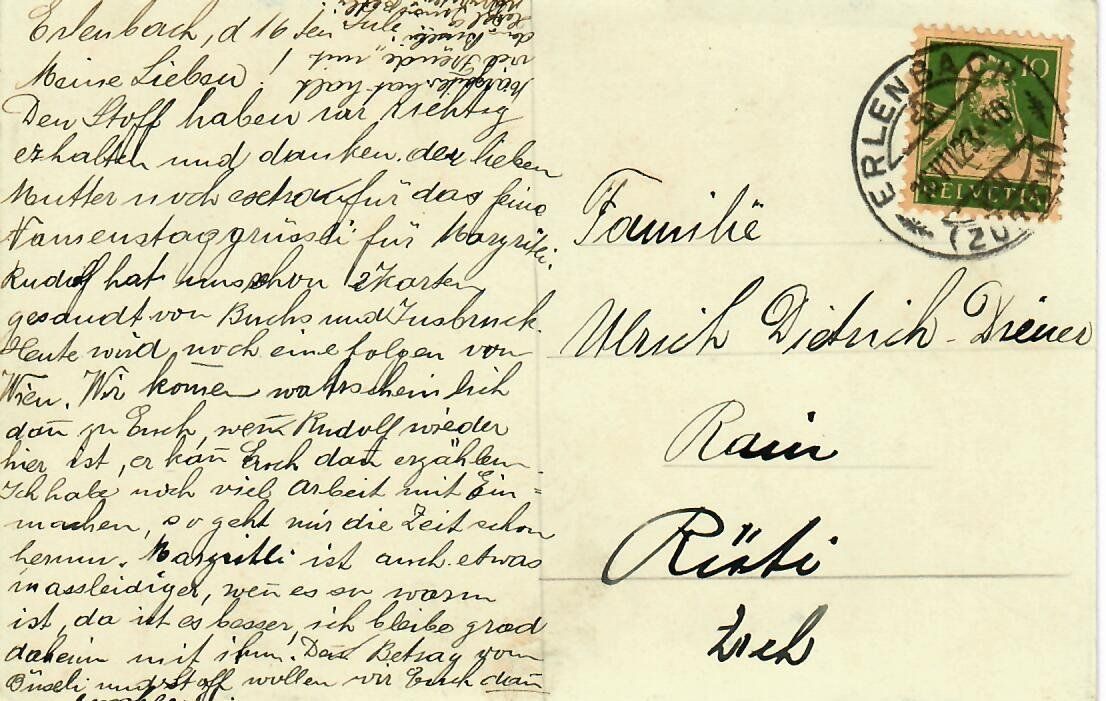 Erlenbach, d 16ten Juli
Meine Lieben!
Den Stoff haben wir richtig
erhalten und danken der lieben
Mutter noch für das feine
Namenstaggrüssli für Margritli.
Rudolf hat uns schon 2 Karten
gesandt von Buchs und Insbruck.
Heute wird noch eine folgen von
Wien. Wir kom̄en wahrscheinlich
dan̄ zu Euch, wen̄ Rudolf wieder
hier ist, er kan̄ Euch dan̄ erzählen.
Ich habe noch viel Arbeit mit Ein=
machen, so geht mir die Zeit schon
herum. Margritli ist auch etwas
massleidiger, wen̄ es so warm
ist, da ist es besser, ich bleibe grad
daheim mit ihm! Den Betrag vom
Büseli und Stoff wollen wir Euch dan̄
Margritli hat halt
viel Freude mit
dem Büseli
ERLENBACH
(ZÜRICH)
VII.23.10
10
HELVETIA
Familie
Ulrich Dietrich-Diener
Rain
Rüti
Zrch